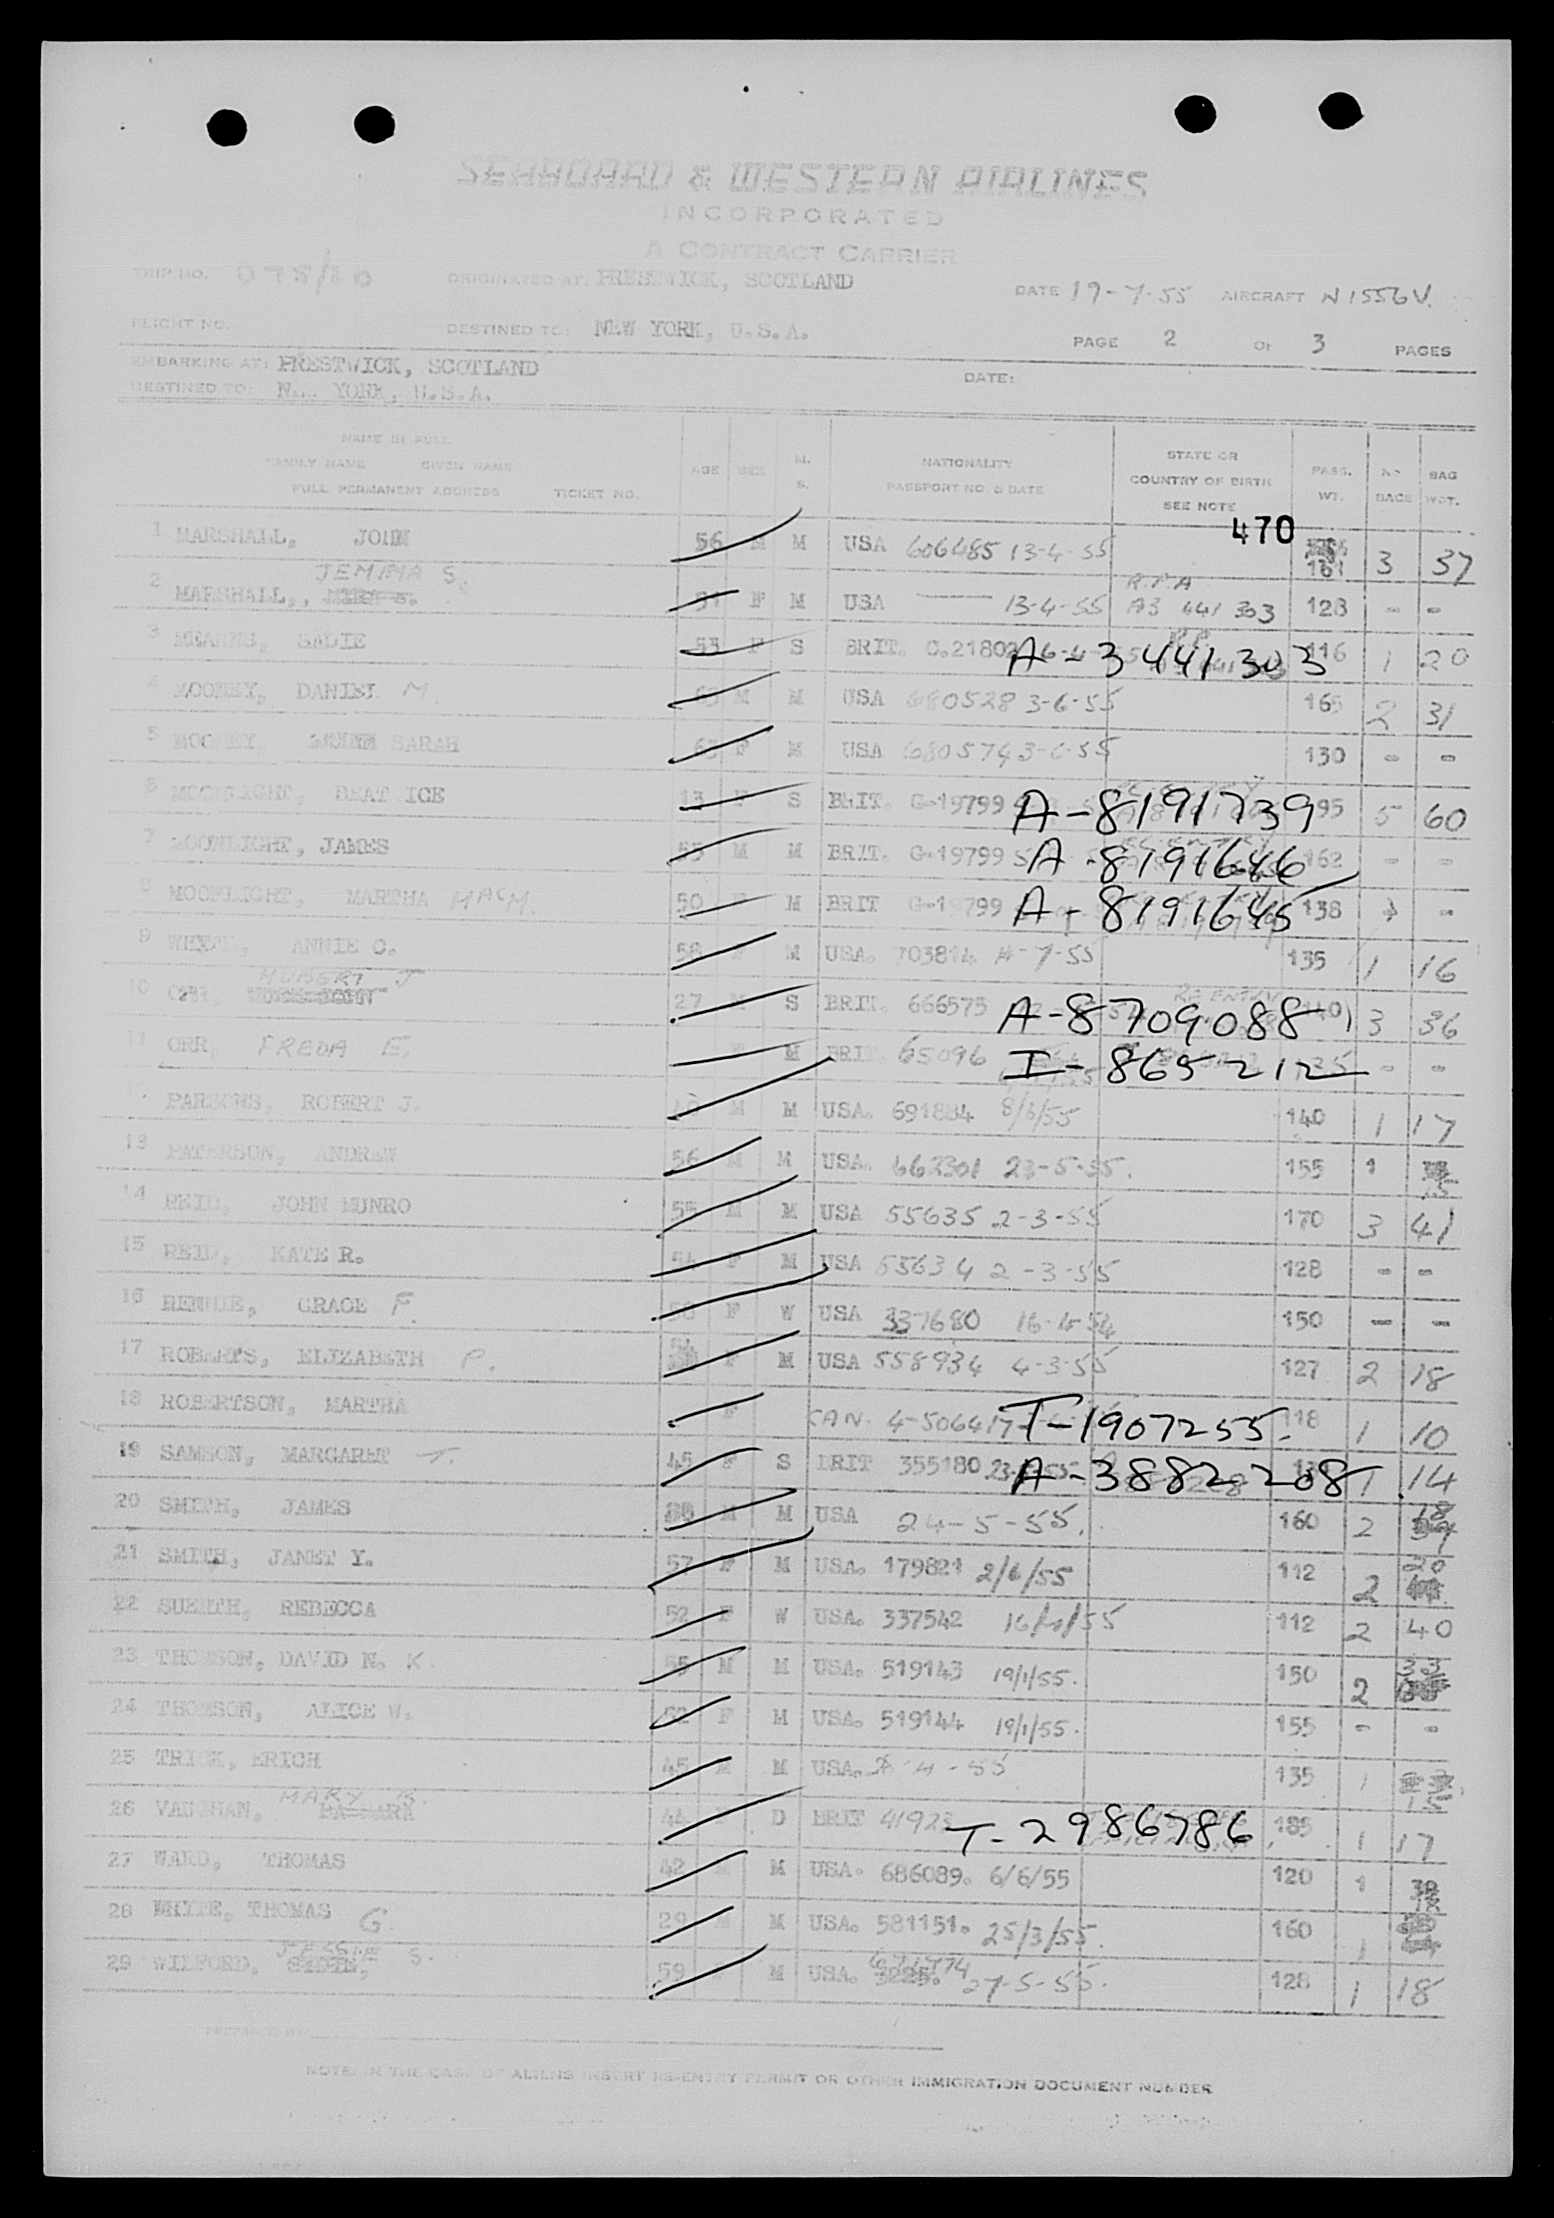 SEABOARD & WESTERN AIRLINES
INCORPORATED
A CONTRACT CARRIER
TRIP NO. ORIGINATED AT: PRESTWICK, SCOTLAND DATE 19-7-55 AIRCRAFT N1556V.
FLIGHT NO. DESTINED TO: NEW YORK, U.S.A. PAGE 2 OF 3 PAGES
EMBARKING AT: PRESTWICK, SCOTLAND DATE:
DESTINED TO: YORK, U.S.A.
NAME IN FULL
FAMILY NAME GIVEN NAME
FULL PERMANENT ADDRESS TICKET NO. AGE SEX M. S. NATIONALITY PASSPORT NO. & DATE STATE OR COUNTRY OF BIRTH SEE NOTE PASS. WT. NO BAGS BAG WGT.
470
1 MARSHALL, JOHN 56 M M USA 606485 13-4-55 161 3 37
JEMIMA S.
2 MARSHALL, F M USA 13-4-55 A3 441 303 128 - -
3 MEARNS, SADIE 53 F S BRIT. C.21802 A-3441303 116 1 20
4 MOONEY, DANIEL M. 65 M M USA 680528 3-6-55 165 2 31
5 MOONEY, SARAH 63 F M USA 680574 3-6-55 130 - -
6 MOONLIGHT, BEATRICE 13 F S BRIT. G-19799 A-8191739 95 5 60
7 MOONLIGHT, JAMES 55 M M BRIT. G-19799 A-8191646 162 - -
8 MOONLIGHT, MARTHA MACM. 50 F M BRIT G-19799 A-8191645 138 -
9 ANNIE C. 58 F M USA. 703814 4-7-55 135 1 16
HUBERT J
10 ORR, 27 M S BRIT. 666575 A-8709088 3 36
11 ORR, FREDA E. F M BRIT 65096 I-865212 - -
PARSONS, ROBERT J. M M USA. 691884 8/6/55 140 1 17
13 PATERSON, ANDREW 56 M M USA. 662301 23-5-55. 155 1
14 REID, JOHN MUNRO 55 M M USA 55635 2-3-55 170 3 41
15 REID, KATE R. 54 F M USA 55634 2-3-55 128 - -
16 RENNIE, GRACE F. 58 F W USA 337680 16-4-54 150 - -
17 ROBERTS, ELIZABETH P. 54 F M USA 558934 4-3-55 127 2 18
18 ROBERTSON, MARTHA F CAN. 4-506417 T-1907255. 118 1 10
19 SAMSON, MARGARET T. 45 F S BRIT 355180 A-3882208 1 14
20 SMITH, JAMES M M USA 24-5-55. 160 2 18
21 SMITH, JANET Y. 57 F M USA. 179821 2/6/55 112 2 20
22 SUEMTH, REBECCA 52 F W USA. 337542 16/4/55 112 2 40
23 THOMSON, DAVID N. K. 55 M M USA. 519143 19/1/55. 150 2 33
24 THOMSON, ALICE W. 52 F M USA. 519144 19/1/55. 155 - -
25 TRICK, ERICH 45 M M USA. 4-55 135 1 15
MARY
26 VAUGHAN, BARBARA 44 D BRIT 41923 T-2986786 185 1 17
27 WARD, THOMAS 42 M M USA. 686089. 6/6/55 120 1
28 WHITE, THOMAS G 29 M M USA. 581151. 25/3/55. 160 1
JESSIE S.
29 WILFORD, 59 M USA. 27-5-55. 128 1 18
PREPARED BY:
NOTE: IN THE CASE OF ALIENS INSERT RE-ENTRY PERMIT OR OTHER IMMIGRATION DOCUMENT NUMBER